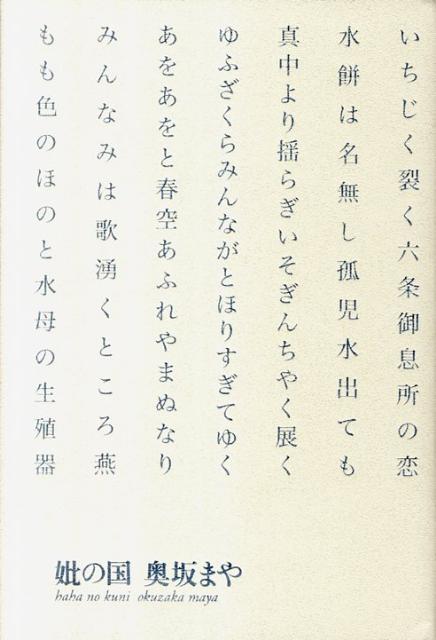 いちじく裂く六条御息所の恋
水餅は名無し孤児水出ても
真中より揺らぎいそぎんちやく展く
ゆふざくらみんながとほりすぎてゆく
あをあをと春空あふれやまぬなり
みんなみは歌湧くところ燕
もも色のほのと水母の生殖器
妣の国 奥坂まや
haha no kuni okuzaka maya